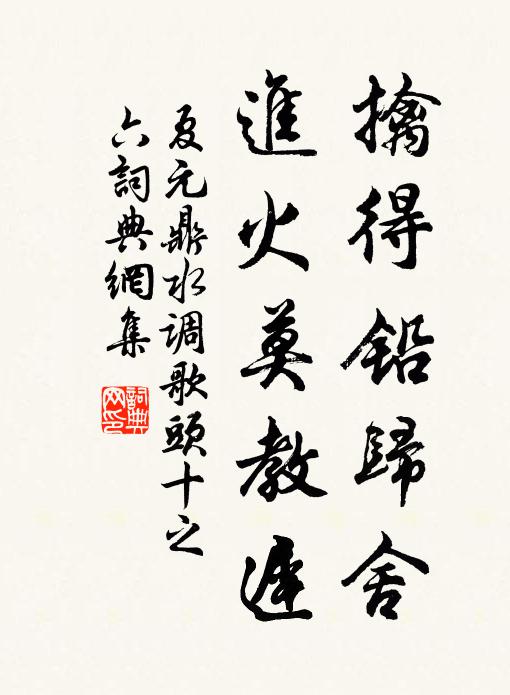 擒得鉛歸舍
進火莫教遲
夏元鼎水调歌頭十之
六詞典網集
詞典
网印